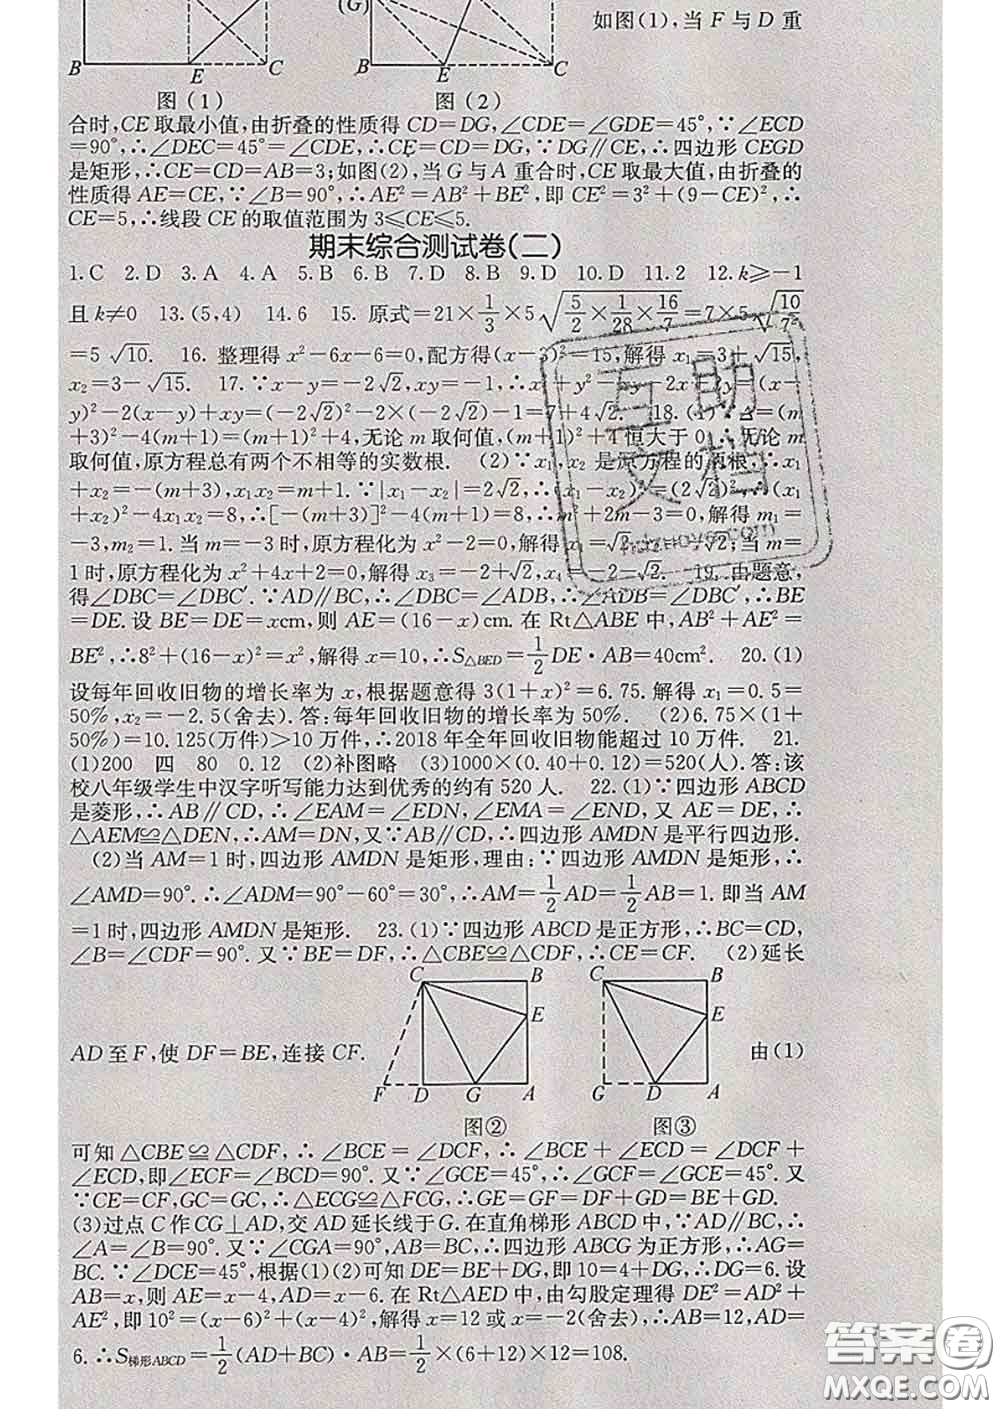 (G)
B E C
B E C
图(1) 图(2)
如图(1),当 F 与 D 重
合时,CE取最小值,由折叠的性质得 CD=DG,∠CDE=∠GDE=45°,∵∠ECD
=90°,∴∠DEC=45°=∠CDE,∴CE=CD=DG,∵DG∥CE,∴四边形 CEGD
是矩形,∴CE=CD=AB=3;如图(2),当 G 与 A 重合时,CE取最大值,由折叠的
性质得 AE=CE,∵∠B=90°,∴AE²=AB²+BE²,即 CE²=3²+(9-CE)²,∴
CE=5,∴线段 CE 的取值范围为 3≤CE≤5.
期末综合测试卷(二)
1.C 2.D 3.A 4.A 5.B 6.B 7.D 8.B 9.D 10.D 11.2 12.k≥-1
且 k≠0 13.(5,4) 14.6 15.原式=21×1/3×5√(5/2×1/28×16/7)=7×5√(10/7²)
=5√10. 16.整理得 x²-6x-6=0,配方得(x-3)²=15,解得 x₁=3+√15,
x₂=3-√15. 17.∵x-y=-2√2,xy=-1,∴x²+y²-xy-2x+2y=(x-
y)²-2(x-y)+xy=(-2√2)²-2×(-2√2)-1=7+4√2. 18.(1)∵△=(m
+3)²-4(m+1)=(m+1)²+4,无论 m 取何值,(m+1)²+4 恒大于 0,∴无论 m
取何值,原方程总有两个不相等的实数根. (2)∵x₁,x₂ 是原方程的两根,∴x₁
+x₂=-(m+3),x₁x₂=m+1.∵|x₁-x₂|=2√2,∴(x₁-x₂)²=(2√2)²,∴(x₁
+x₂)²-4x₁x₂=8,∴[-(m+3)]²-4(m+1)=8,∴m²+2m-3=0,解得 m₁=
-3,m₂=1.当 m=-3时,原方程化为 x²-2=0,解得 x₁=√2,x₂=-√2;当 m=
1时,原方程化为 x²+4x+2=0,解得 x₃=-2+√2,x₄=-2-√2. 19.由题意,
得∠DBC=∠DBC′.∵AD∥BC,∴∠DBC=∠ADB,∴∠ADB=∠DBC′,∴BE
=DE.设 BE=DE=xcm,则 AE=(16-x)cm.在 Rt△ABE 中,AB²+AE²=
BE²,∴8²+(16-x)²=x²,解得 x=10,∴S△BED=1/2DE·AB=40cm². 20.(1)
设每年回收旧物的增长率为 x,根据题意得 3(1+x)²=6.75.解得 x₁=0.5=
50%,x₂=-2.5(舍去).答:每年回收旧物的增长率为 50%. (2)6.75×(1+
50%)=10.125(万件)>10 万件,∴2018 年全年回收旧物能超过 10 万件. 21.
(1)200 四 80 0.12 (2)补图略 (3)1000×(0.40+0.12)=520(人).答:该
校八年级学生中汉字听写能力达到优秀的约有 520 人. 22.(1)∵四边形 ABCD
是菱形,∴AB∥CD,∴∠EAM=∠EDN,∠EMA=∠END,又 AE=DE,∴
△AEM≌△DEN,∴AM=DN,又∵AB∥CD,∴四边形 AMDN 是平行四边形.
(2)当 AM=1时,四边形 AMDN 是矩形,理由:∵四边形 AMDN 是矩形,∴
∠AMD=90°.∴∠ADM=90°-60°=30°,∴AM=1/2AD=1/2AB=1.即当 AM
=1时,四边形 AMDN 是矩形. 23.(1)∵四边形 ABCD 是正方形,∴BC=CD,
∠B=∠CDF=90°.又∵BE=DF,∴△CBE≌△CDF,∴CE=CF. (2)延长
AD 至 F,使 DF=BE,连接 CF.
C B E F D G A
图②
C B E G D A
图③
由(1)
可知△CBE≌△CDF,∴∠BCE=∠DCF,∴∠BCE+∠ECD=∠DCF+
∠ECD,即∠ECF=∠BCD=90°.又∵∠GCE=45°,∴∠GCF=∠GCE=45°.又
∵CE=CF,GC=GC,∴△ECG≌△FCG,∴GE=GF=DF+GD=BE+GD.
(3)过点 C 作 CG⊥AD,交 AD 延长线于 G.在直角梯形 ABCD 中,∵AD∥BC,∴
∠A=∠B=90°.又∵∠CGA=90°,AB=BC,∴四边形 ABCG 为正方形,∴AG=
BC.∵∠DCE=45°,根据(1)(2)可知 DE=BE+DG,即 10=4+DG,∴DG=6.设
AB=x,则 AE=x-4,AD=x-6.在 Rt△AED 中,由勾股定理得 DE²=AD²+
AE²,即 10²=(x-6)²+(x-4)²,解得 x=12 或 x=-2(舍去),∴AB=12,AD=
6.∴S梯形ABCD=1/2(AD+BC)·AB=1/2×(6+12)×12=108.
互助文档
答案圈
MXQE.COM